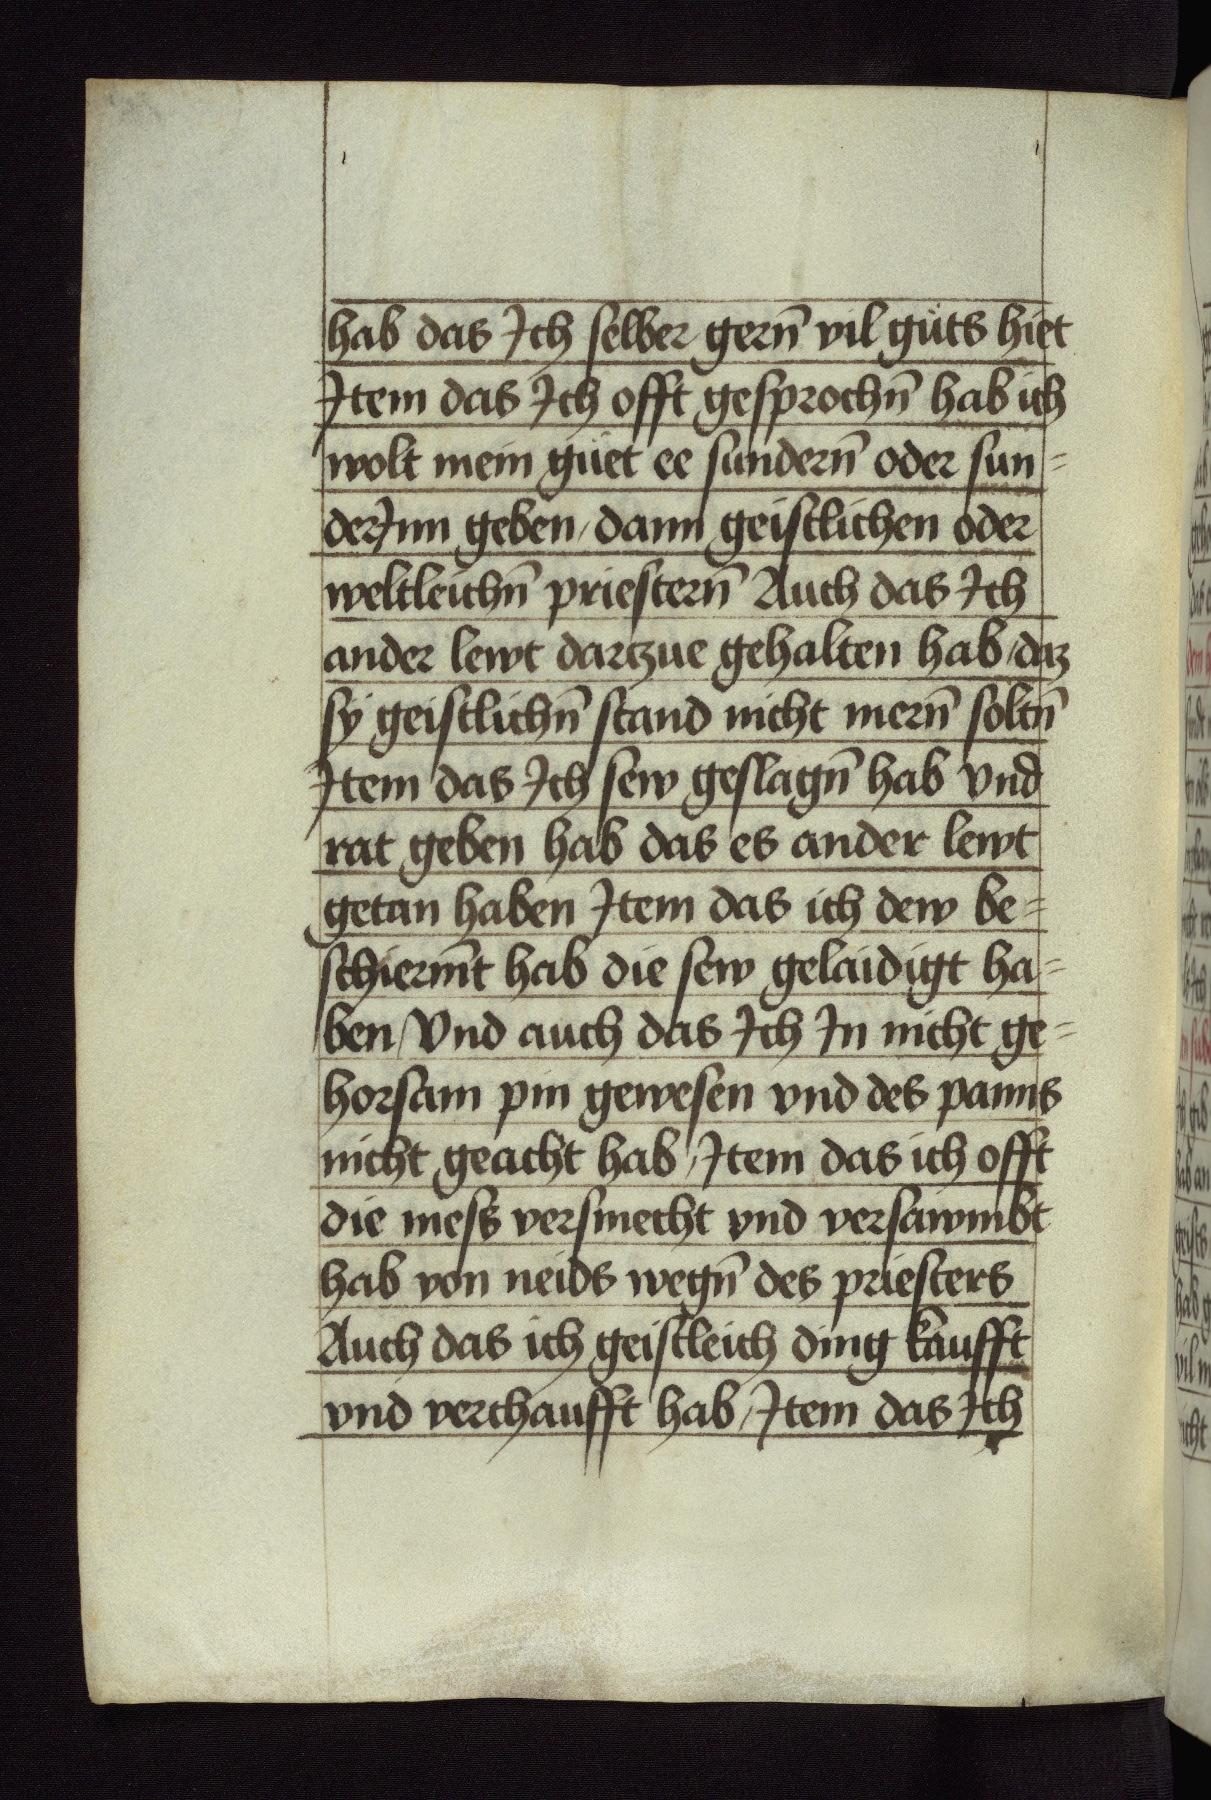 hab das Ich selber gern̄ vil gůts hiet
Item das Ich offt gesprochn̄ hab ich
wolt mein gůet ee sundern̄ oder sun=
derInn geben / dann geistlichen oder
weltleichn̄ priestern̄ Auch das Ich
ander lewt dartzue gehalten hab / daz
sÿ geistlichn̄ stand nicht mern̄ soltn̄
Item das Ich sew geslagn̄ hab Vnd
rat geben hab das es ander lewt
getan haben Item das ich dew be=
schierm̄t hab die sew gelaidigt ha=
ben / Vnd auch das Ich In nicht ge=
horsam pin gewesen vnd des panns
nicht geacht hab / Item das ich offt
die mess versmecht vnd versawmbt
hab von neids wegn̄ des priesters
Auch das ich geistleich ding kaufft
vnd verchaufft hab / Item das Ich